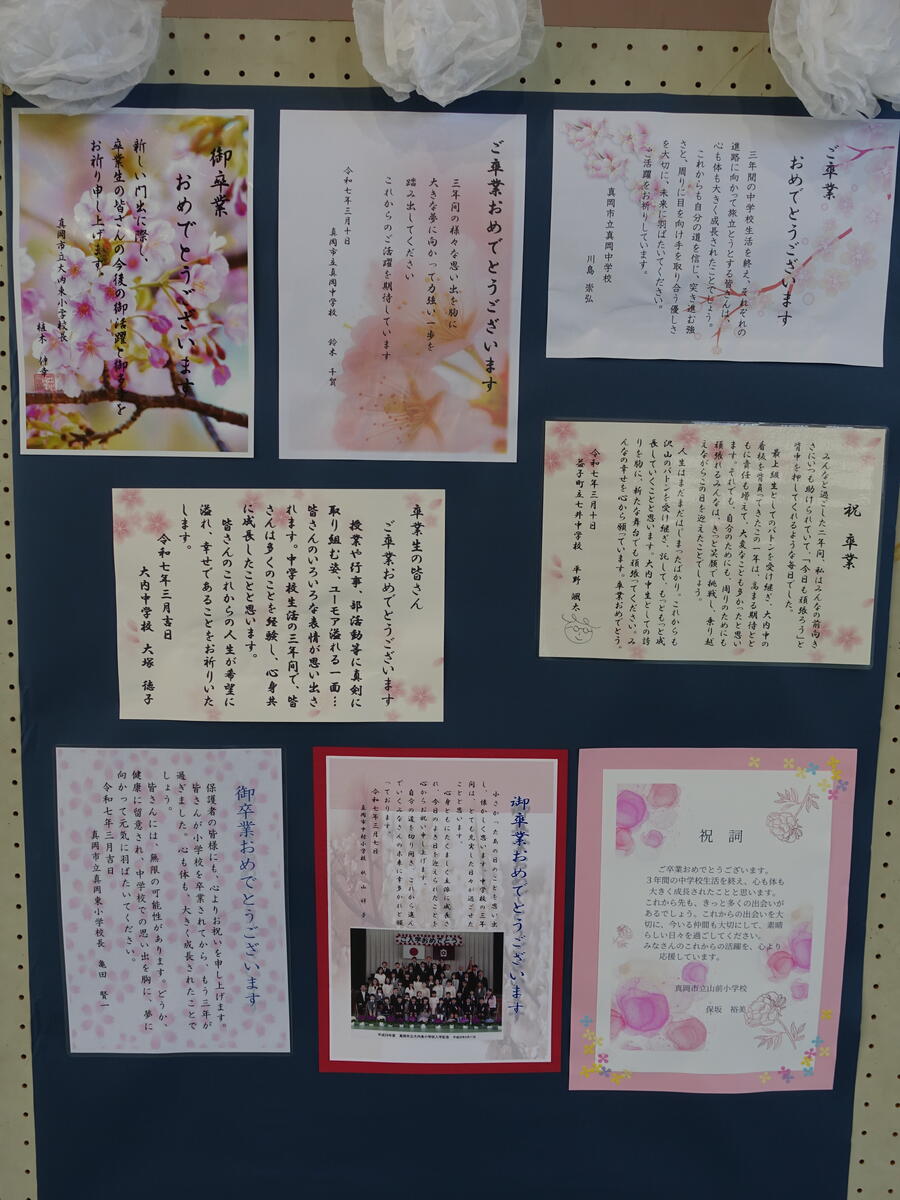 御卒業
おめでとうございます
新しい門出に際し、
卒業生の皆さんの今後の御活躍と御多幸を
お祈り申し上げます。
真岡市立大内東小学校長
ご卒業おめでとうございます
三年間の様々な思い出を胸に
大きな夢に向かって力強い一歩を
踏み出してください
これからのご活躍を期待しています
令和七年三月十日
真岡市立真岡中学校 鈴木 千賀
ご卒業
おめでとうございます
三年間の中学校生活を終え、それぞれの
進路に向かって旅立とうとする皆さんは、
心も体も大きく成長されたことでしょう。
これからも自分の道を信じ、突き進む強
さと、周りに目を向け手を取り合う優しさ
を大切に、未来に羽ばたいてください。
ご活躍をお祈りしています。
真岡市立真岡中学校
川島 崇弘
祝 卒業
みんなと過ごした二年間、私はみんなの前向き
さにいつも助けられていて、「今日も頑張ろう」と
背中を押してくれるような毎日でした。
最上級生としてのバトンを受け継ぎ、大内中の
看板を背負ってきたこの一年は、高まる期待とと
もに責任も増えて、大変なことも多かったと思い
ます。それでも、自分のためにも、周りのためにも
頑張れるみんなは、きっと笑顔で挑戦し、乗り越
えながらこの日を迎えたことでしょう。
人生はまだまだはじまったばかり。これからも
沢山のバトンを受け継ぎ、託して、もっともっと成
長していくことと思います。大内中生としての誇
りを胸に、新たな舞台でも頑張ってください。み
んなの幸せを心から願っています。卒業おめでとう。
令和七年三月十日
益子町立七井中学校 平野 颯太
卒業生の皆さん
ご卒業おめでとうございます
授業や行事、部活動等に真剣に
取り組む姿、ユーモア溢れる一面…
皆さんのいろいろな表情が思い出さ
れます。中学校生活の三年間で、皆
さんは多くのことを経験し、心身共
に成長したことと思います。
皆さんのこれからの人生が希望に
溢れ、幸せであることをお祈りいた
します。
令和七年三月吉日
大内中学校 大塚 徳子
御卒業おめでとうございます
保護者の皆様にも、心よりお祝いを申し上げます。
皆さんが小学校を卒業されてから、もう三年が
過ぎました。心も体も、大きく成長されたことで
しょう。
皆さんには、無限の可能性があります。どうか、
健康に留意され、中学校での思い出を胸に、夢に
向かって元気に羽ばたいてください。
令和七年三月吉日
真岡市立真岡東小学校長 亀田 賢一
御卒業おめでとうございます
小さかったあの日のことを思い出
し、懐かしく思います。中学校の三年
間は、とても充実した日々が過ごせた
ことと思います。
心身ともにたくましく立派に成長さ
れ、今日のよき日を迎えられたことを
心からお祝い申し上げます。
自分の道を切り開き、これから進ん
でいくみなさんの未来に幸多かれと願
っております。
令和七年三月七日
真岡市立中村小学校 秋山 祥子
ご入学おめでとう
祝 詞
ご卒業おめでとうございます。
3年間の中学校生活を終え、心も体も
大きく成長されたことと思います。
これから先も、きっと多くの出会いが
あるでしょう。これからの出会いを大
切に、今いる仲間も大切にして、素晴
らしい日々を過ごしてください。
みなさんのこれからの活躍を、心より
応援しています。
真岡市立山前小学校
保坂 裕美